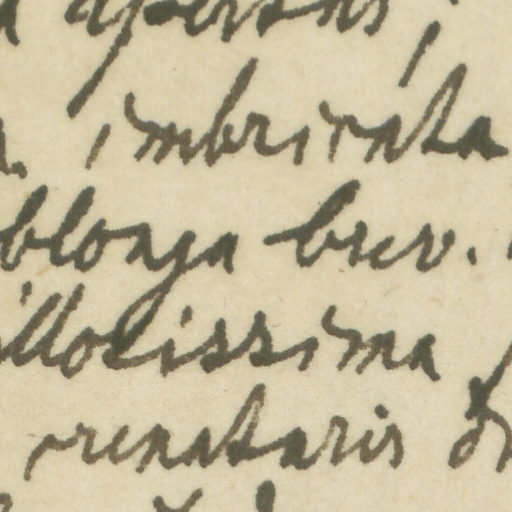 apertus;
imbricata
blonga brev.
illosissima
crenataris